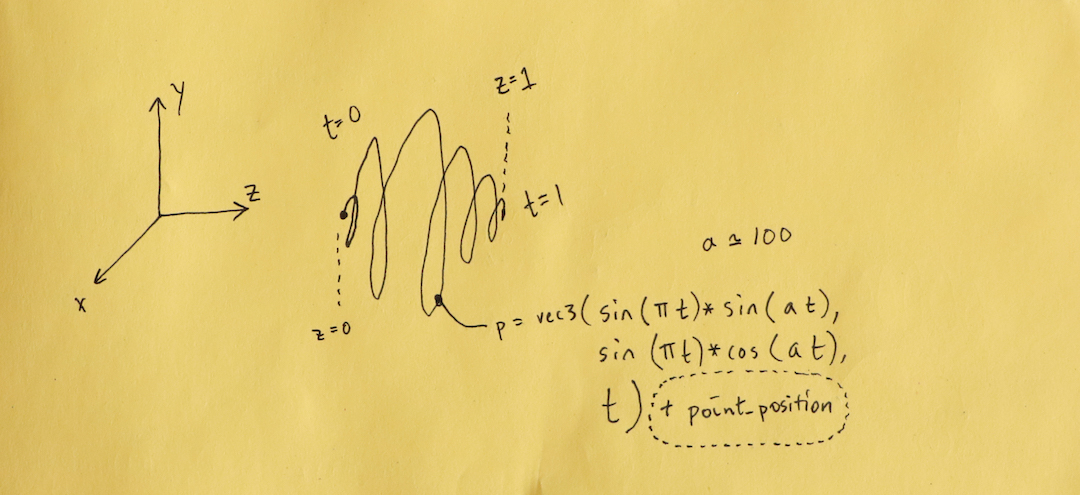 y
z
x
t=0
z=1
t=1
z=0
a ≃ 100
p = vec3( sin(πt)* sin(at),
sin (πt)*cos(at),
t) + point_position